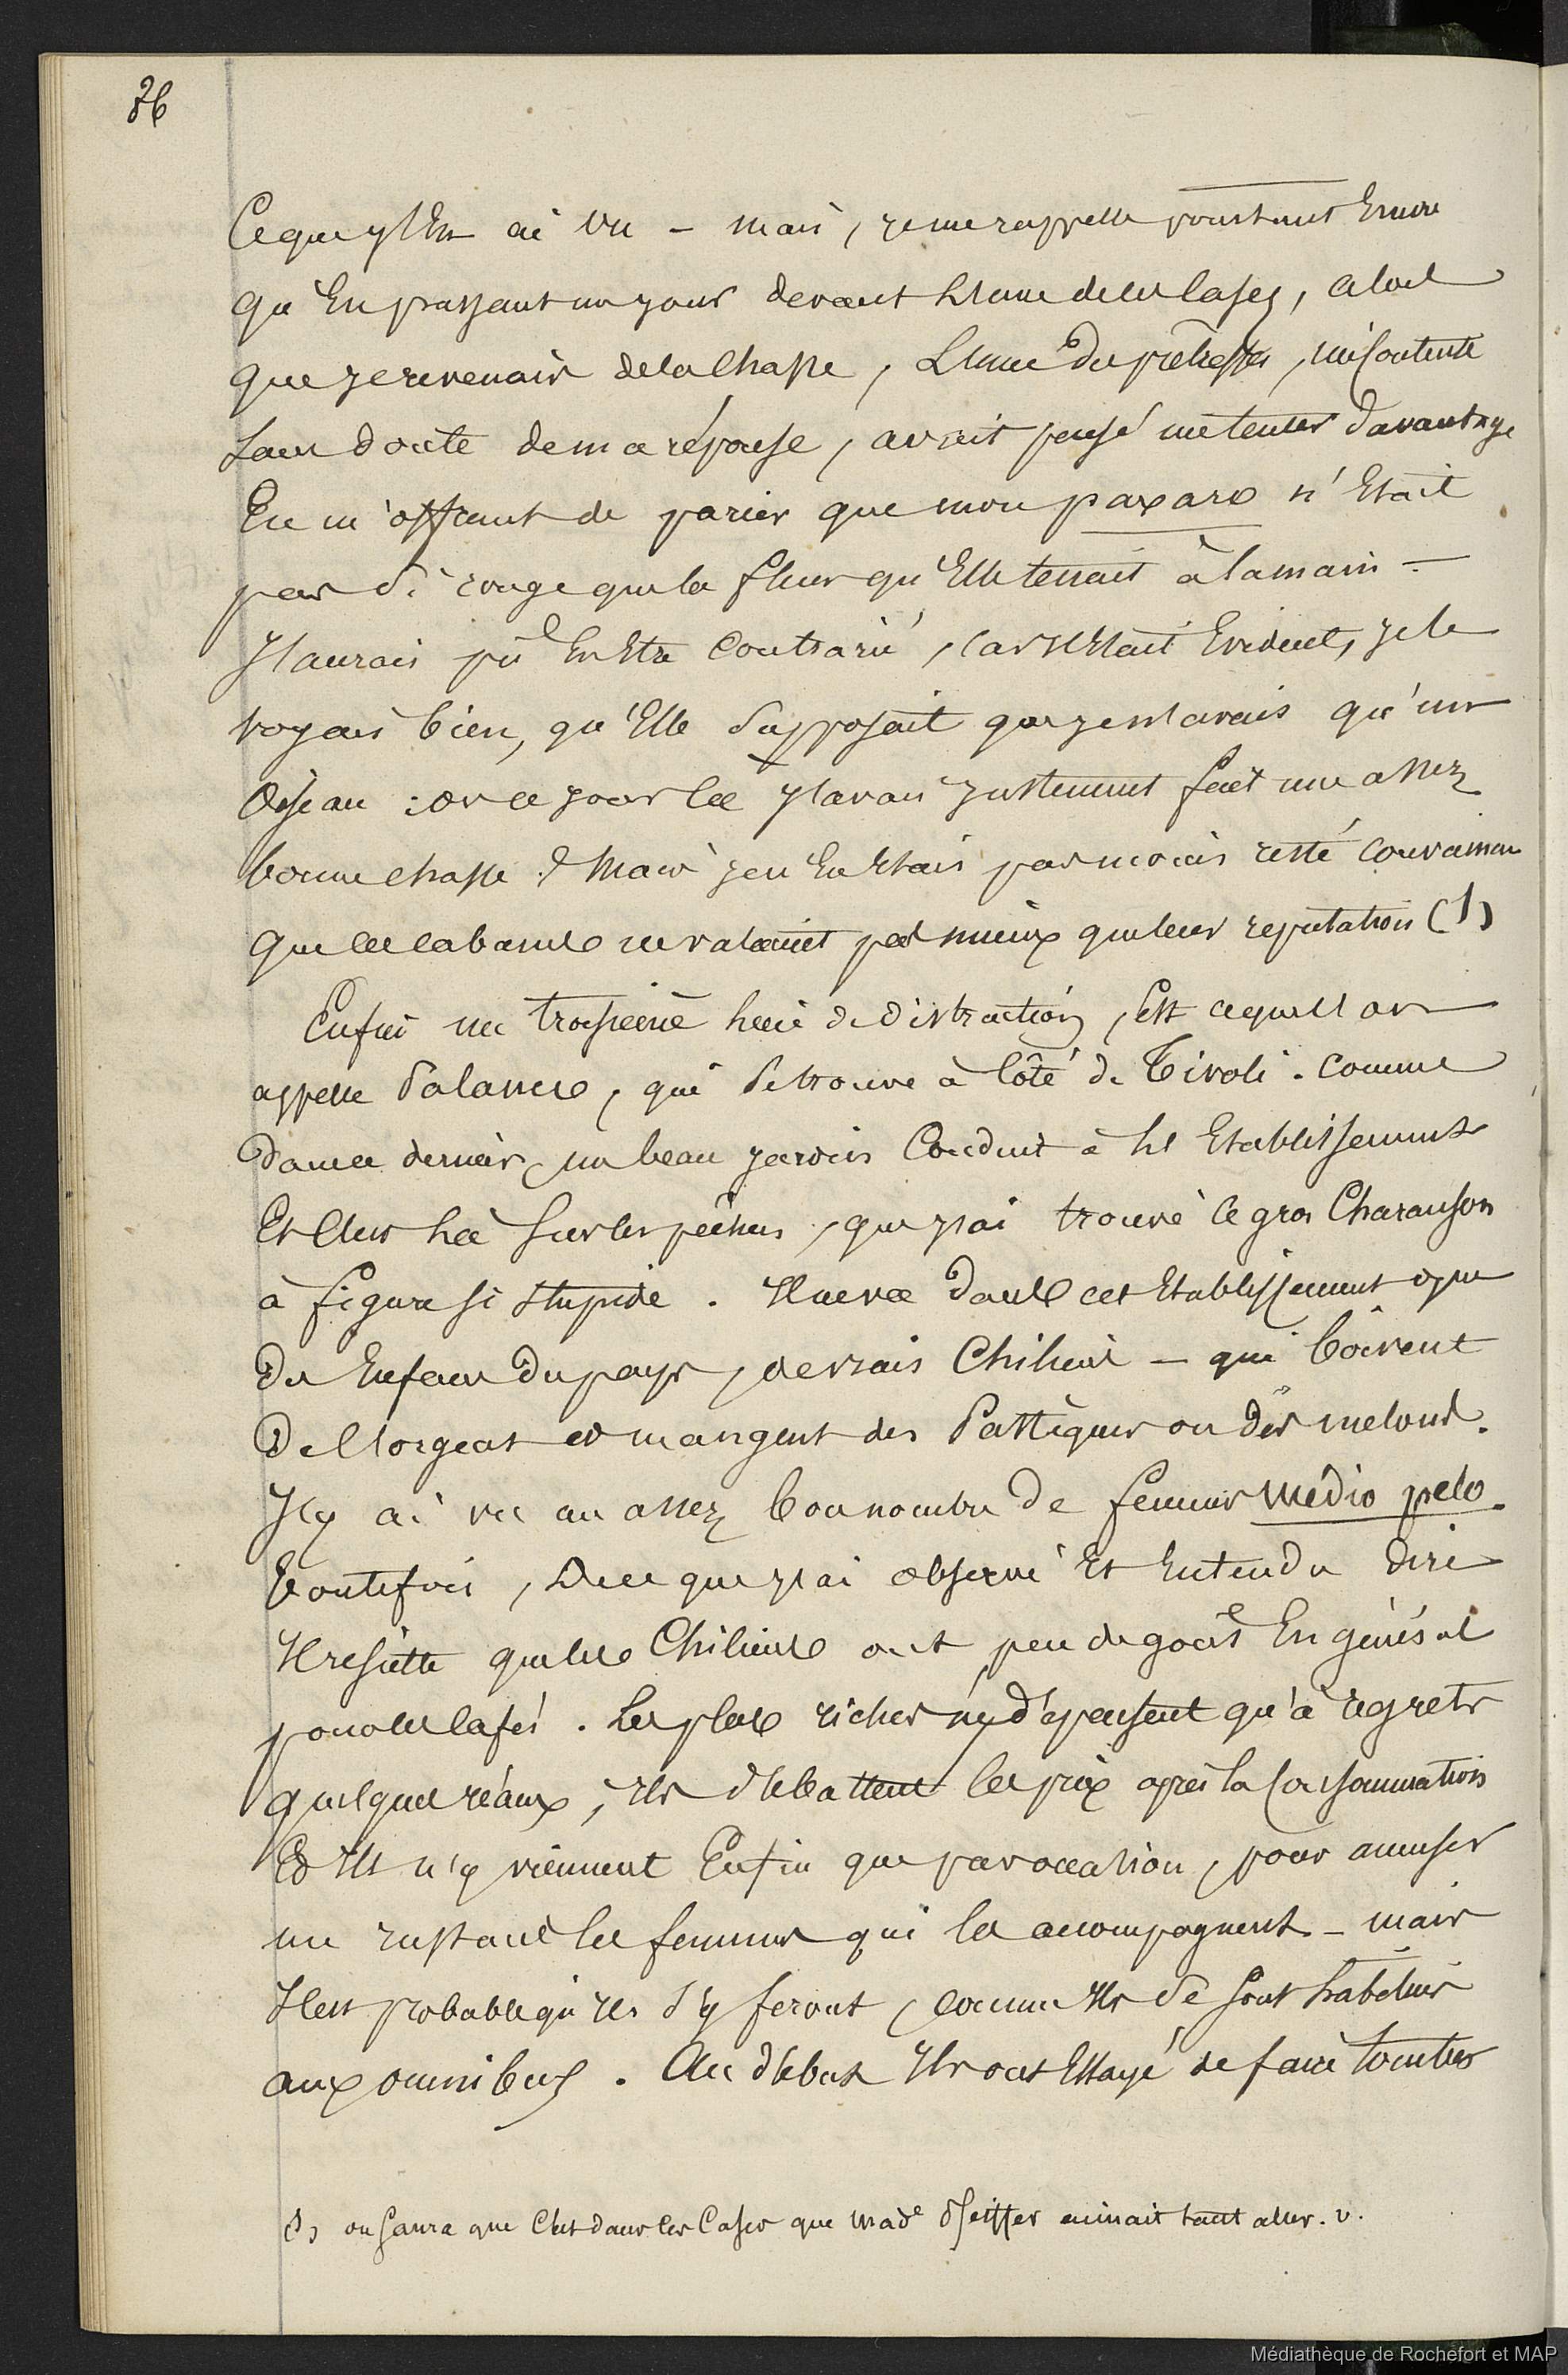 36
Ce que j'en ai vu – mais, je me rappelle pourtant encore
qu'en passant un jour devant l'une de ces cases, alors
que je revenais de la chasse, l'une des prêtresses, mécontente
sans doute de ma réponse, avait pensé me tenter davantage
en m'offrant de parier que mon paxaro n'était
pas si rouge que la fleur qu'elle tenait à la main –
J'aurais pu en être contrarié, car il était évident, je le
voyais bien, qu'elle supposait que je n'avais qu'un
oiseau : or ce jour là j'avais justement fait une assez
bonne chasse. Mais je n'en étais pas moins resté convaincu
que les cabanes ne valaient pas mieux que leur reputation (1)
Enfin un troisième lieu de distraction, est ce que l'on
appelle Polanco, qui se trouve à côté de Tivoli. Comme
dans ce dernier, un beau jardin conduit à l'Etablissement
et c'est là sur les pêchers, que j'ai trouvé le gros Charanson
à figure si stupide. Il ne va dans cet Etablissement que
des enfans du pays, de vrais Chiliens – qui boivent
de l'orgeat et mangent des Pastèques ou des melons.
J'y ai vu un assez bon nombre de femmes médio pelo.
Toutefois, de ce que j'ai observé et entendu dire
il résulte que les Chiliens ont peu de goût en général
pour les cafés. Les plus riches n'y dépensent qu'à regrets
quelques réaux ; ils débattent les prix après la consommation
et ils n'y viennent enfin que par occasion, pour amuser
un instant les femmes qui les accompagnent – mais
il est probable qu'ils s'y feront, comme ils se sont habitués
aux omnibus. Au début ils ont essayé de faire tomber
(1) on saura que c'est dans les Cases que Made Pfeiffer aimait tant aller. v.
Médiathèque de Rochefort et MAP